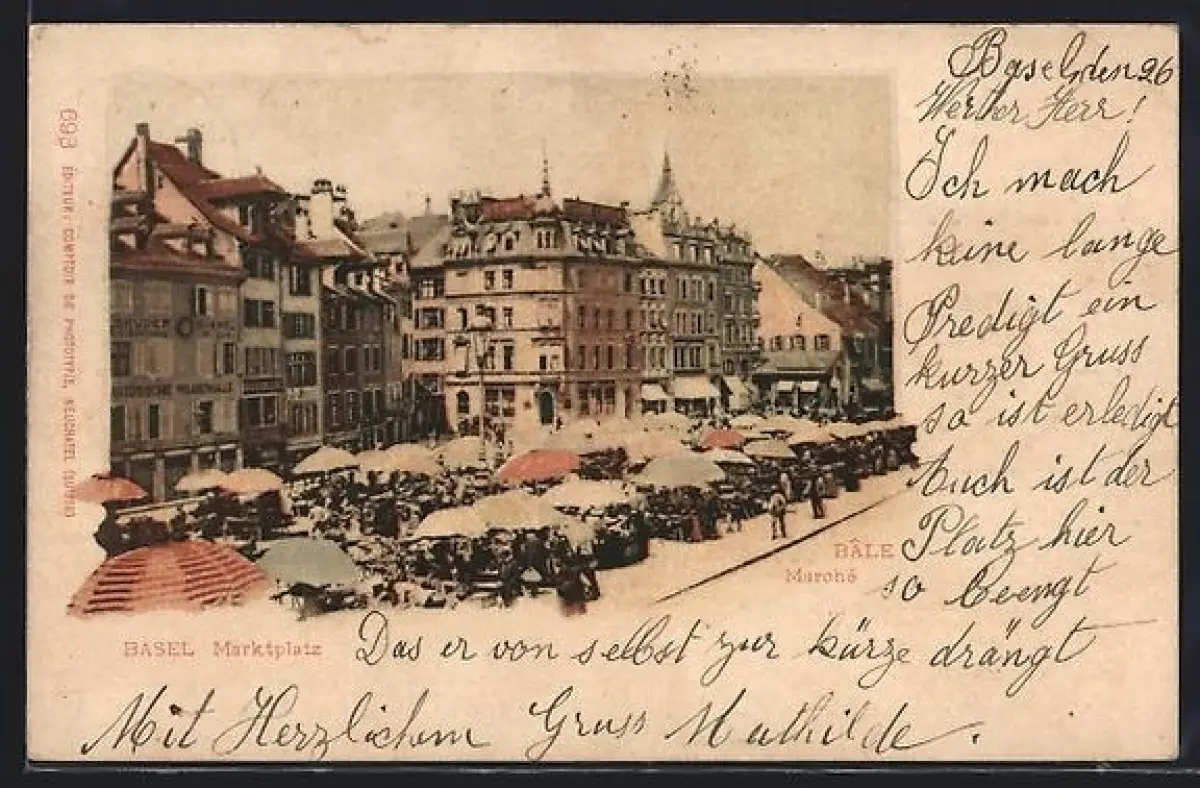 Basel, den 26
Werter Herr!
Ich mach
keine lange
Predigt ein
kurzer Gruss
so ist erledigt
Auch ist der
Platz hier
so beengt
Das er von selbst zur kürze drängt
Mit Herzlichem Gruss Mathilde.
BASEL Marktplatz
BÂLE
Marché
693 EDITEUR: COMPTOIR DE PHOTOTYPIE, NEUCHATEL (SUISSE)